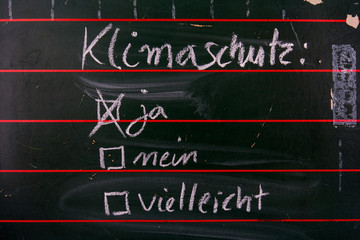 Klimaschutz:
ja
nein
vielleicht